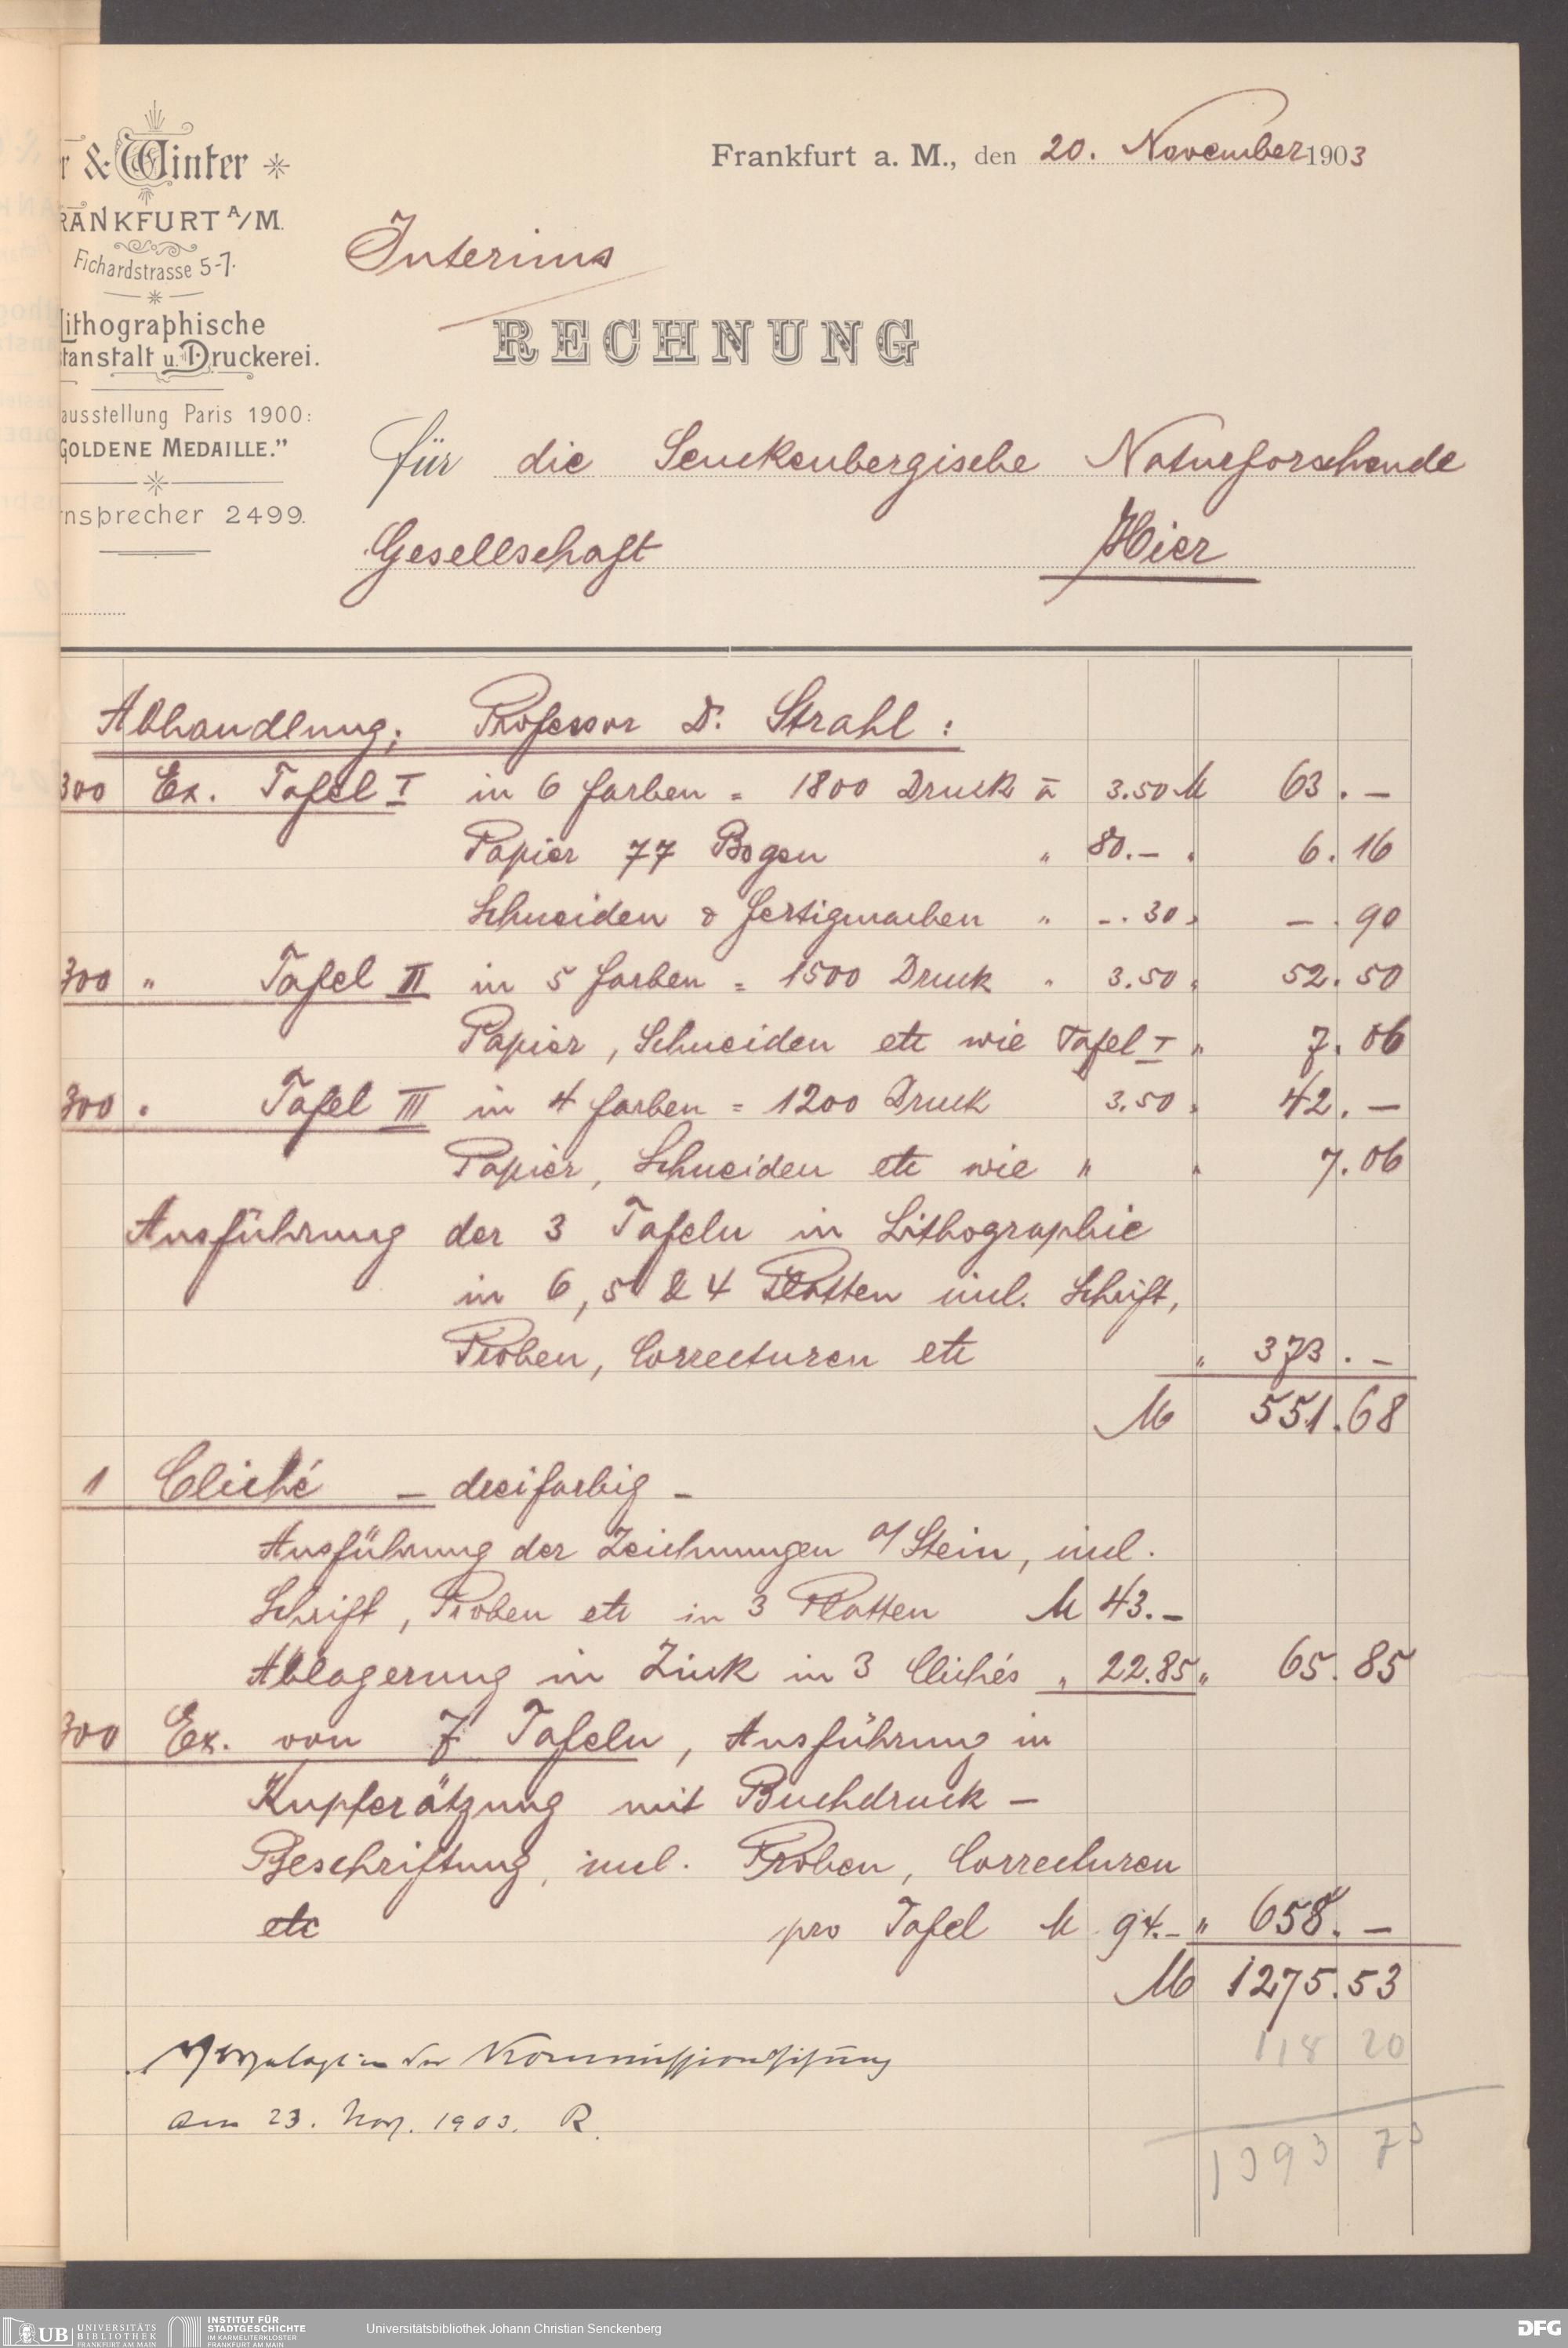 r & Winter
RANKFURT A/M.
Fichardstrasse 5-7.
Lithographische
stanstalt u. Druckerei.
ausstellung Paris 1900:
GOLDENE MEDAILLE."
rnsprecher 2499.
Frankfurt a. M., den 20. November 1903
Interims
RECHNUNG
für die Senckenbergische Naturforschende
Gesellschaft Hier
Abhandlung; Professor Dr. Strahl:
300 Ex. Tafel I in 6 Farben = 1800 Druck à 3.50 M 63.—
Papier 77 Bogen " 80.— " 6.16
Schneiden & fertigmachen " -.30 " —.90
300 " Tafel II in 5 Farben = 1500 Druck " 3.50 " 52.50
Papier, Schneiden etc wie Tafel I " 7.06
300 " Tafel III in 4 Farben = 1200 Druck 3.50 " 42.—
Papier, Schneiden etc wie " " 7.06
Ausführung der 3 Tafeln in Lithographie
in 6, 5 & 4 Platten incl. Schrift,
Proben, Correcturen etc " 373.—
M 551.68
1 Cliché — dreifarbig —
Ausführung der Zeichnungen a/Stein, incl.
Schrift, Proben etc in 3 Platten M 43.—
Ablagerung in Zink in 3 Clichés " 22.85 " 65.85
300 Ex. von 7 Tafeln, Ausführung in
Kupferätzung mit Buchdruck —
Beschriftung, incl. Proben, Correcturen
etc pro Tafel M 94.— " 658.—
M 1275.53
118 20
Vorgelegt in der Kommissionssitzung
am 23. Nov. 1903. R.
1393 73
UB UNIVERSITÄTS
BIBLIOTHEK
FRANKFURT AM MAIN
INSTITUT FÜR
STADTGESCHICHTE
IM KARMELITERKLOSTER
FRANKFURT AM MAIN
Universitätsbibliothek Johann Christian Senckenberg
DFG